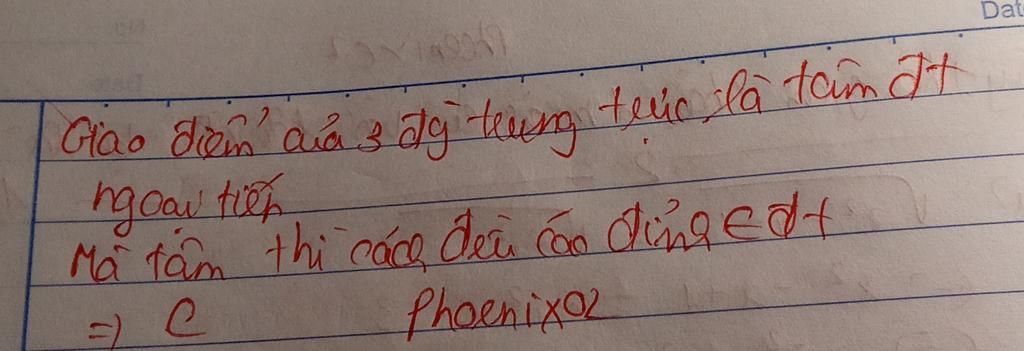 Dat
Giao điểm của 3 đg trung trực là tâm đt
ngoại tiếp
Mà tâm thì cách đều các đỉnh ∈ đt
=) C Phoenix02